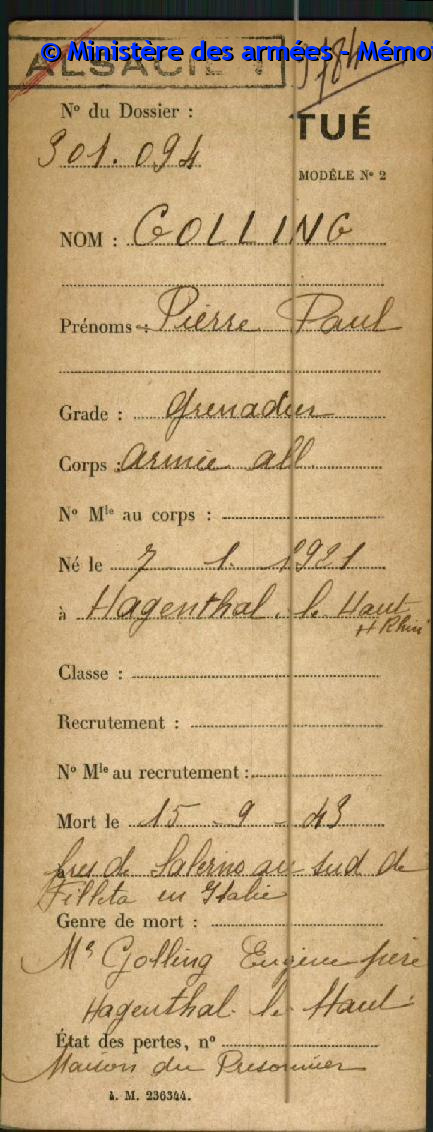 © Ministère des armées - Mémo
ALSACIE
784
N° du Dossier :
301.094
TUÉ
MODÈLE N° 2
NOM : GOLLING
Prénoms : Pierre Paul
Grade : Grenadier
Corps : armée all.
N° Mle au corps :
Né le 7 1. 1921
à Hagenthal. le Haut
Ht Rhin
Classe :
Recrutement :
N° Mle au recrutement :
Mort le 15 - 9 - 43
près de Salerno au sud de
Filleta en Italie
Genre de mort :
Mr Golling Eugène père
Hagenthal. le Haut.
État des pertes, n°
Maison du Prisonnier
A. M. 236344.